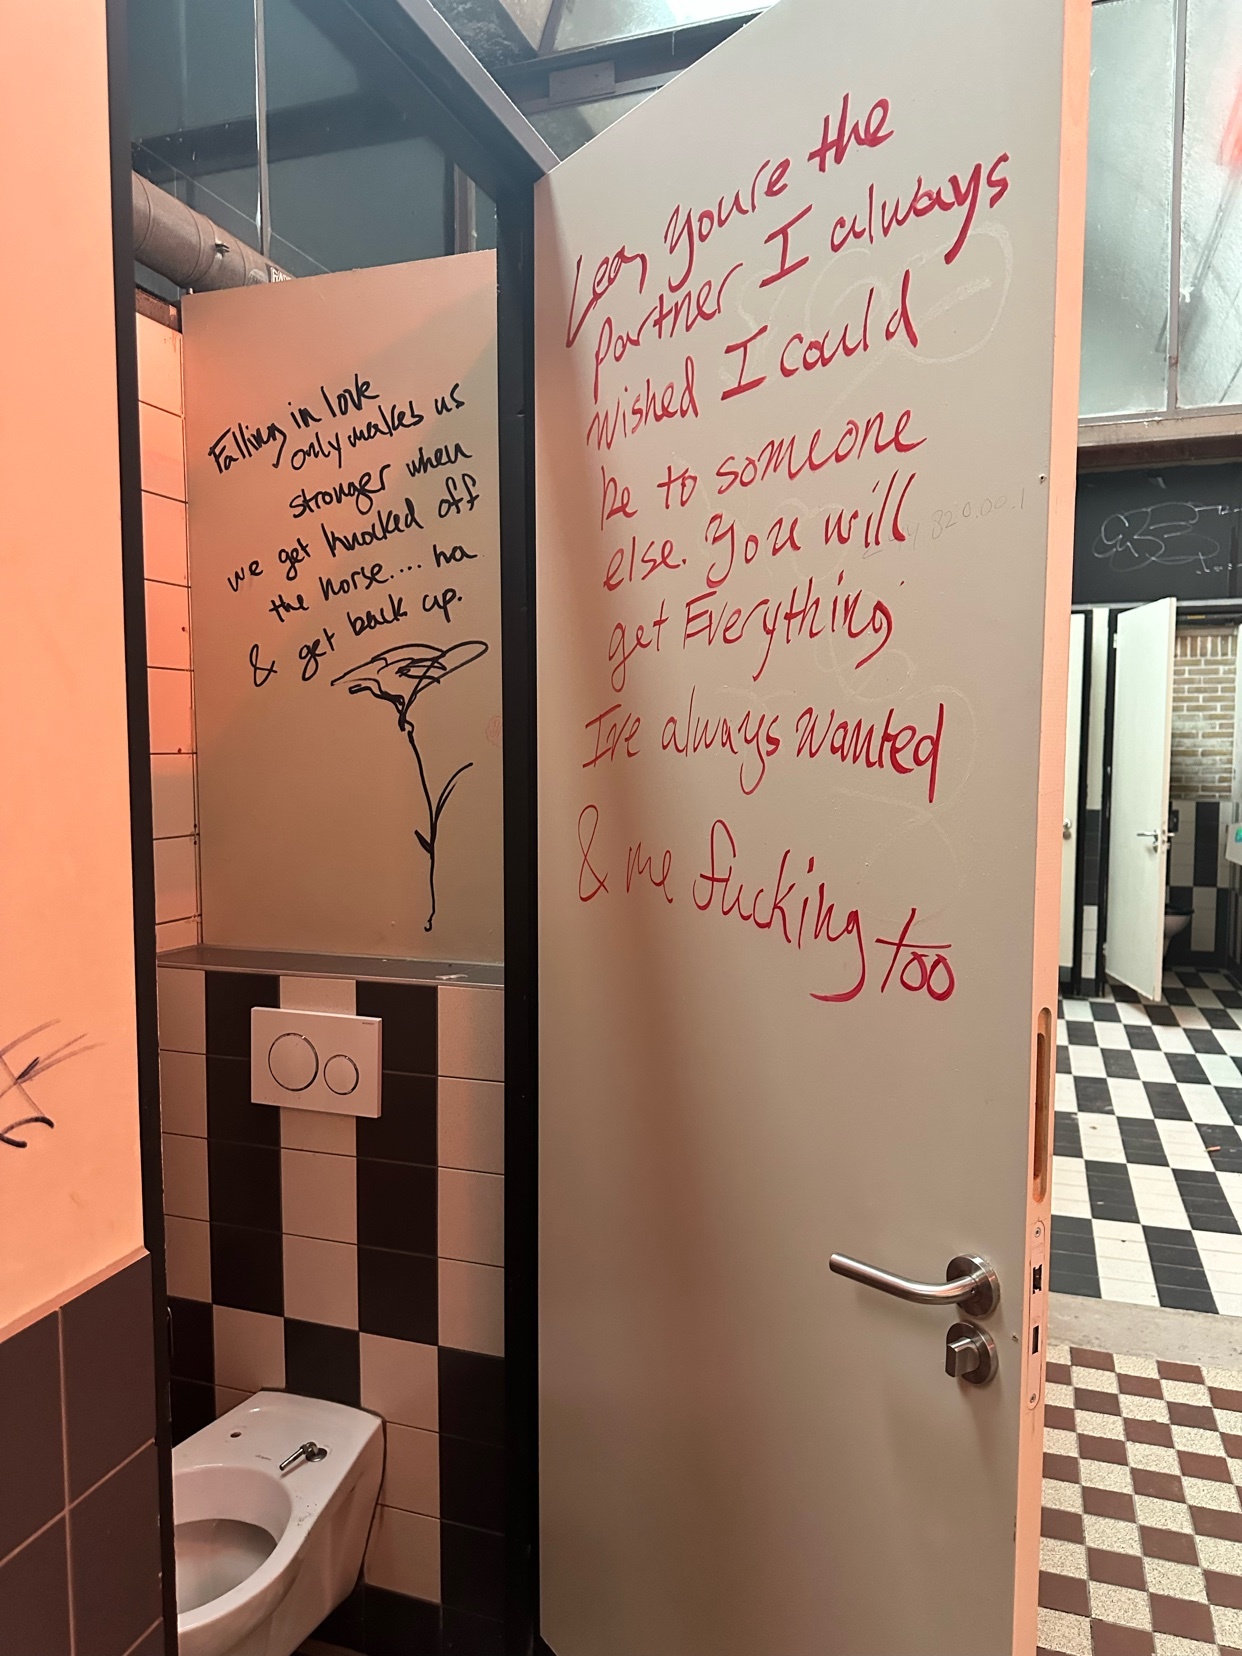 Falling in love
only makes us
stronger when
we get knocked off
the horse.... ha
& get back up.
Lea, you're the
partner I always
wished I could
be to someone
else. You will
get Everything
I've always wanted
& me fucking too